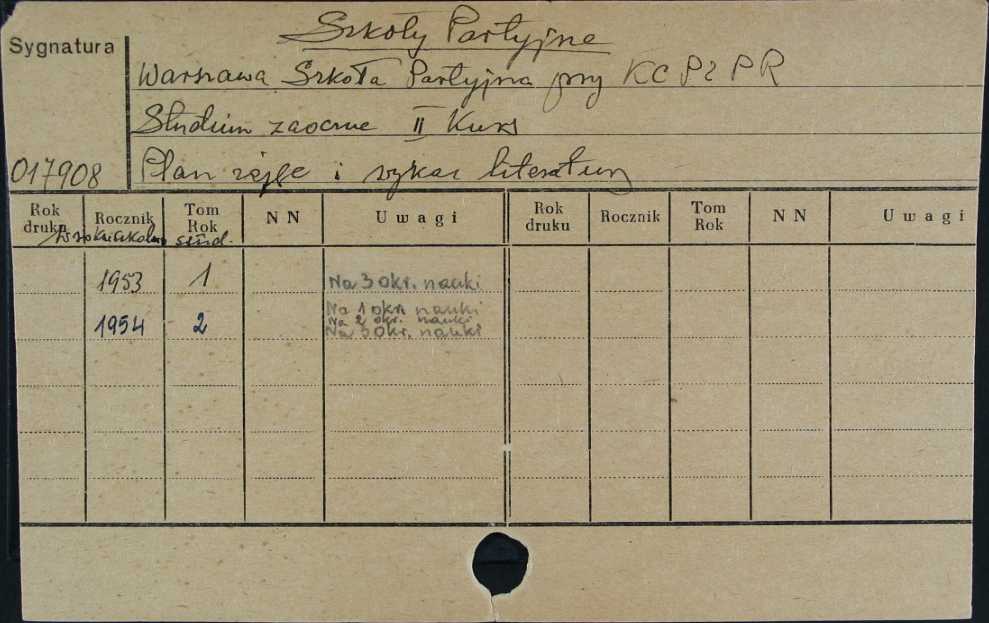 Szkoły Partyjne
Sygnatura
Warszawa Szkoła Partyjna przy KC PZPR
Studium zaoczne II Kurs
017908
Plan zajęć i wykaz literatury
Rok druku Rocznik Tom Rok NN Uwagi Rok druku Rocznik Tom Rok NN Uwagi
stud.
1953 1 Na 3 okr. nauki
1954 2 Na 1 okr. nauki
Na 2 okr. nauki
Na 3 okr. nauki